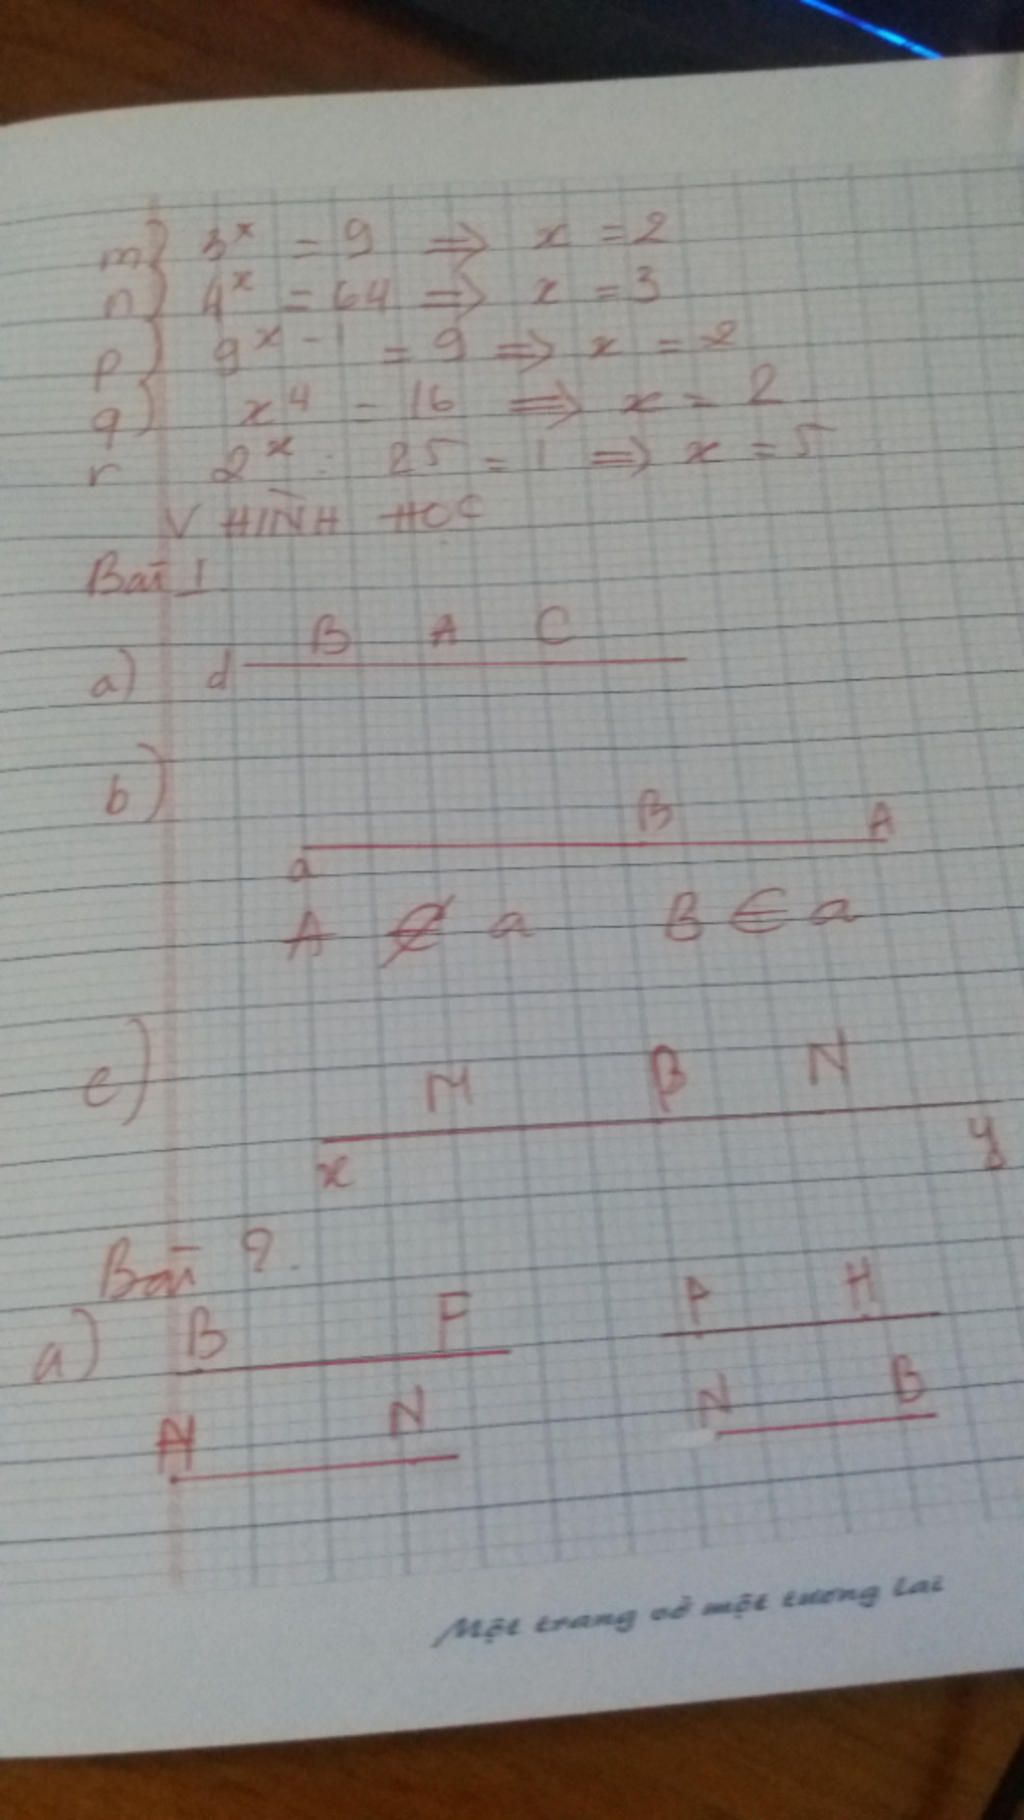 m) 3^x = 9 => x = 2
n) 4^x = 64 => x = 3
p) 9^x-1 = 9 => x = 2
q) x^4 = 16 => x = 2
r 2^x : 25 = 1 => x = 5
V HÌNH HỌC
Bài 1
B A C
a) d
b)
B A
a
A ∉ a B ∈ a
c)
M P N
x y
Bài 2.
a) B F P H
N N B
Một trang vở một tương lai